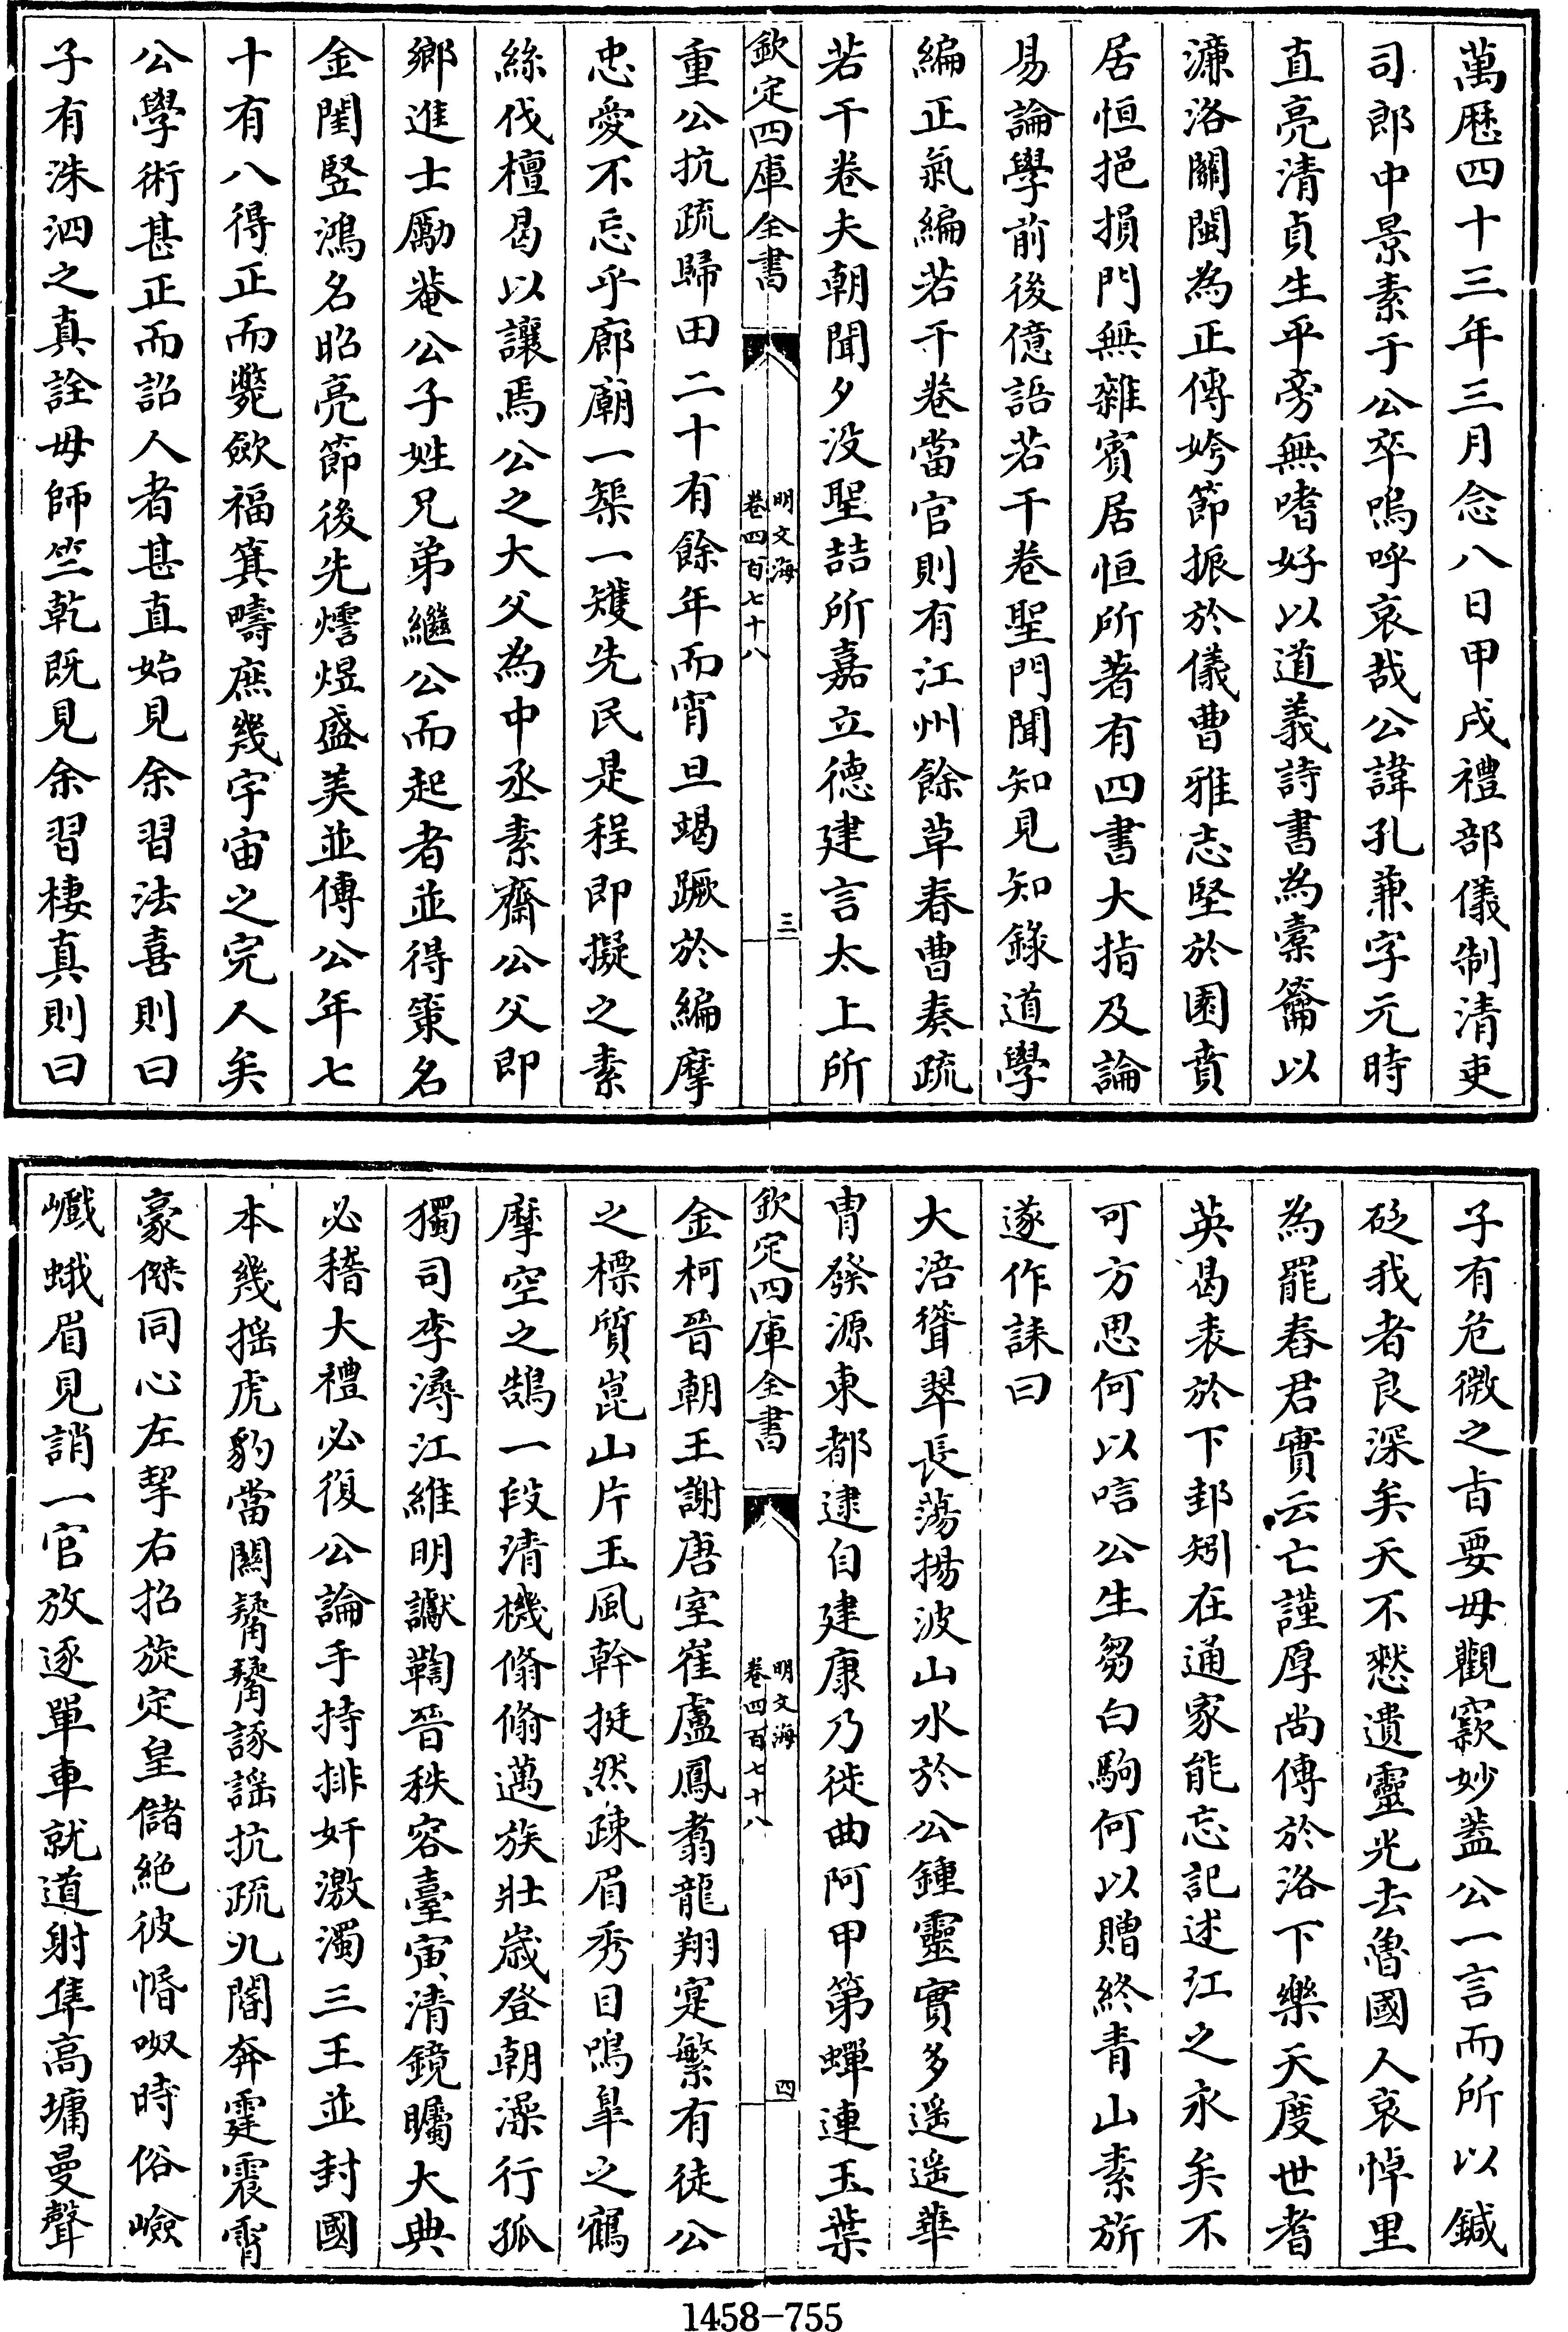 萬歷四十三年三月念八日甲戌禮部儀制清吏
司郎中景素于公卒嗚呼哀哉公諱孔兼字元時
直亮清貞生平旁無嗜好以道義詩書為橐籥以
濂洛關閩為正傳姱節振於儀曹雅志堅於園賁
居恒挹損門無雜賓居恒所著有四書大指及論
易論學前後億語若干卷聖門聞知見知錄道學
編正氣編若干卷當官則有江州餘草春曹奏疏
若干卷夫朝聞夕没聖喆所嘉立德建言太上所
欽定四庫全書
明文海
卷四百七十八
三
重公抗疏歸田二十有餘年而宵旦竭蹶於編摩
忠愛不忘乎廊廟一榘一矱先民是程即擬之素
絲伐檀曷以讓焉公之大父為中丞素齋公父即
鄉進士勵菴公子姓兄弟繼公而起者並得策名
金閨豎鴻名昭亮節後先熠煜盛美並傳公年七
十有八得正而斃歛福箕疇庶幾宇宙之完人矣
公學術甚正而詔人者甚直始見余習法喜則曰
子有洙泗之真詮毋師竺乾既見余習棲真則曰
子有危微之㫖要毋觀窾妙蓋公一言而所以鍼
砭我者良深矣天不憖遺靈光去魯國人哀悼里
為罷舂君實云亡謹厚尚傳於洛下樂天度世耆
英曷表於下邽矧在通家能忘記述江之永矣不
可方思何以唁公生芻白駒何以贈終青山素旂
遂作誄曰
大涪聳翠長蕩揚波山水於公鍾靈實多遥遥華
胄發源東都逮自建康乃徙曲阿甲第蟬連玉葉
欽定四庫全書
明文海
卷四百七十八
四
金柯晉朝王謝唐室崔盧鳳翥龍翔寔繁有徒公
之標質崑山片玉風幹挺然疎眉秀目鳴臯之鶴
摩空之鵠一段清機翛翛邁族壯歲登朝澡行孤
獨司李潯江維明讞鞫晉秩容臺寅清鏡矚大典
必稽大禮必復公論手持排奸激濁三王並封國
本幾揺虎豹當關觺觺諑謡抗疏九閽奔霆震霄
豪傑同心左挈右招旋定皇儲絶彼惛呶時俗嶮
巇蛾眉見誚一官放逐單車就道射隼高墉曼聲
1458-755